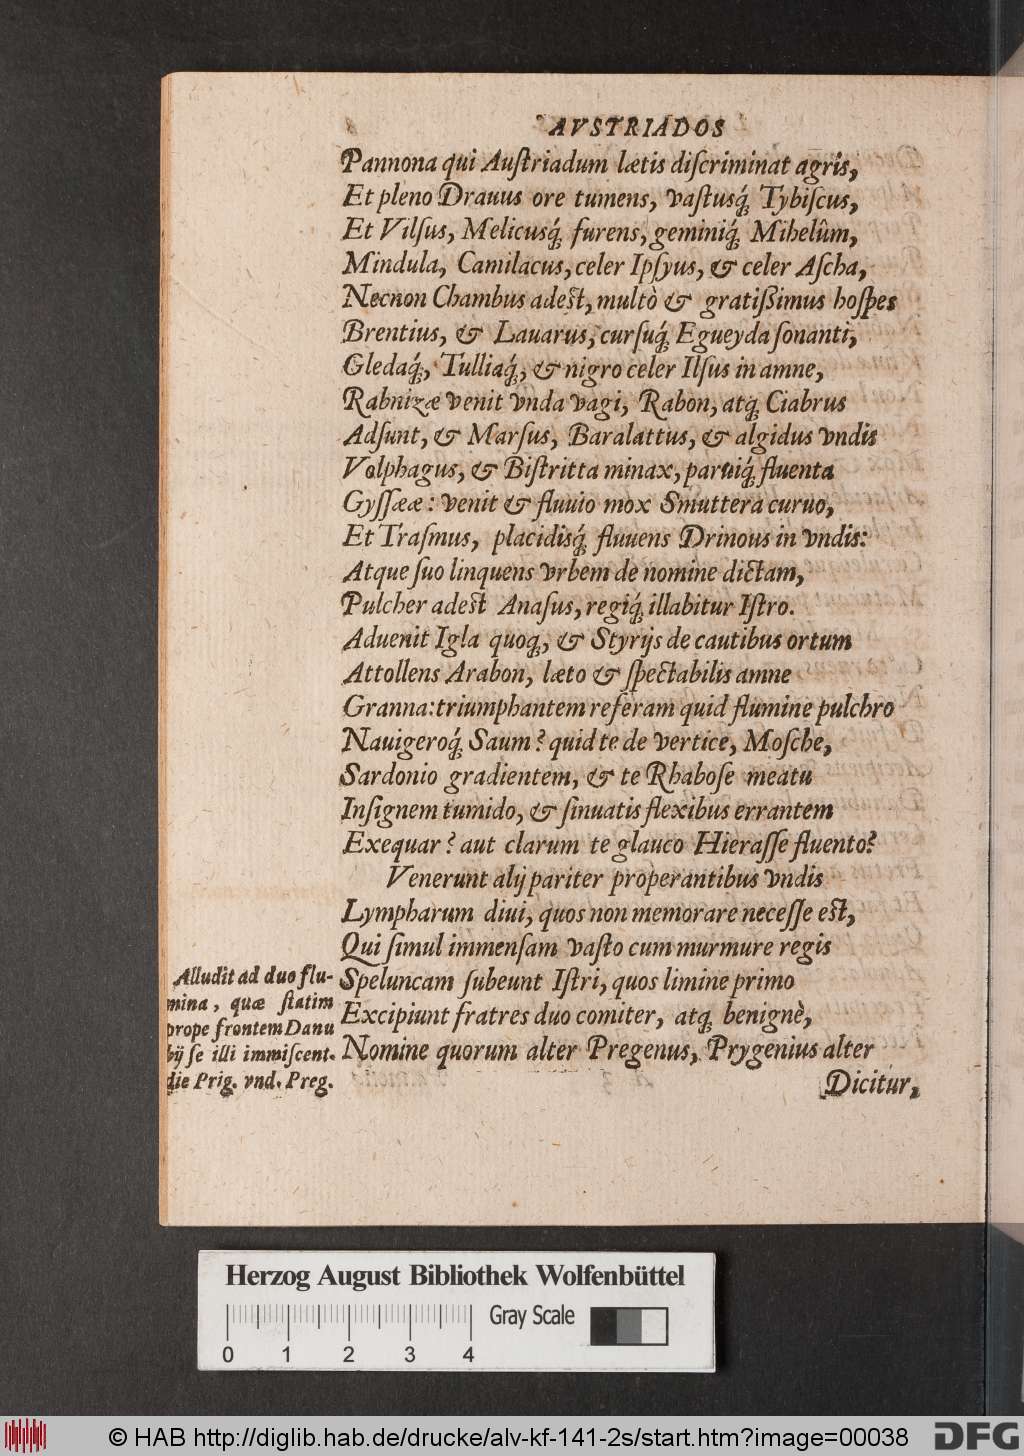 AVSTRIADOS
Pannona qui Auſtriadum lætis diſcriminat agris,
Et pleno Drauus ore tumens, vaſtusq́; Tybiſcus,
Et Vilſus, Melicusq́; furens, geminiq́; Mihelûm,
Mindula, Camilacus, celer Ipſyus, & celer Aſcha,
Necnon Chambus adest, multò & gratißimus hoſpes
Brentius, & Lauarus, curſuq́; Egueyda ſonanti,
Gledaq́;, Tulliaq́;, & nigro celer Ilſus in amne,
Rabnizæ venit vnda vagi, Rabon, atq; Ciabrus
Adſunt, & Marſus, Baralattus, & algidus vndis
Volphagus, & Biſtritta minax, paruiq́; fluenta
Gyſſææ: venit & fluuio mox Smuttera curuo,
Et Traſmus, placidisq́; fluuens Drinous in vndis:
Atque ſuo linquens vrbem de nomine dictam,
Pulcher adest Anaſus, regiq́; illabitur Iſtro.
Aduenit Igla quoq;, & Styrijs de cautibus ortum
Attollens Arabon, læto & ſpectabilis amne
Granna: triumphantem referam quid flumine pulchro
Nauigeroq́; Saum? quid te de vertice, Moſche,
Sardonio gradientem, & te Rhaboſe meatu
Inſignem tumido, & ſinuatis flexibus errantem
Exequar? aut clarum te glauco Hieraſſe fluento?
Venerunt alij pariter properantibus vndis
Lympharum diui, quos non memorare neceſſe est,
Qui ſimul immenſam vaſto cum murmure regis
Speluncam ſubeunt Iſtri, quos limine primo
Excipiunt fratres duo comiter, atq; benignè,
Nomine quorum alter Pregenus, Prygenius alter
Dicitur,
Alludit ad duo flu-
mina, quæ ſtatim
prope frontem Danu
bij ſe illi immiſcent.
die Prig. vnd. Preg.
Herzog August Bibliothek Wolfenbüttel
Gray Scale
0 1 2 3 4
© HAB http://diglib.hab.de/drucke/alv-kf-141-2s/start.htm?image=00038
DFG